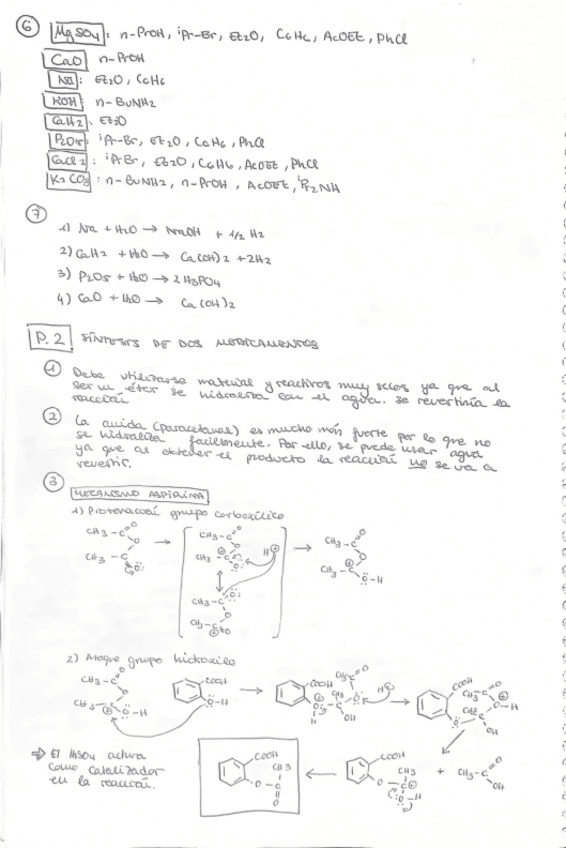 6 MgSO4: n-PrOH, iPr-Br, Et2O, C6H6, AcOEt, PhCl
CaO n-PrOH
Na: Et2O, C6H6
KOH: n-BuNH2
CaH2: Et2O
P2O5: iPr-Br, Et2O, C6H6, PhCl
CaCl2: iPrBr, Et2O, C6H6, AcOEt, PhCl
K2CO3: n-BuNH2, n-PrOH, AcOEt, iPr2NH
7
1) Na + H2O → NaOH + 1/2 H2
2) CaH2 + H2O → Ca(OH)2 + 2H2
3) P2O5 + H2O → 2 H3PO4
4) CaO + H2O → Ca(OH)2
P.2 SÍNTESIS DE DOS MEDICAMENTOS
1 Debe utilizarse material y reactivos muy secos ya que al
ser un éter se hidroliza con el agua. Se revertiría la
reacción
2 La amida (paracetamol) es mucho más fuerte por lo que no
se hidroliza facilmente. Por ello, se puede usar agua
ya que al obtener el producto la reacción no se va a
revertir.
3 MECANISMO ASPIRINA
1) Protonación grupo carboxílico
CH3-C=O
O
CH3-C
O
→
CH3-C=O
O
CH3-C
O
H+
CH3-C=O
O
CH3-C
O
→
CH3-C=O
O
CH3-C
O-H
2) Ataque grupo hidroxilo
CH3-C=O
O
CH3-C
O-H
COOH
O-H
→
COOH
CH3
C=O
O
CH3
C
OH
H
H+
→
COOH
CH3
C=O
O-H
CH3
C
OH
O
⇒ El H2SO4 actua
como catalizador
en la reacción.
COOH
CH3
O-C
O
←
COOH
CH3
O-C
O-H
+ CH3-C=O
OH